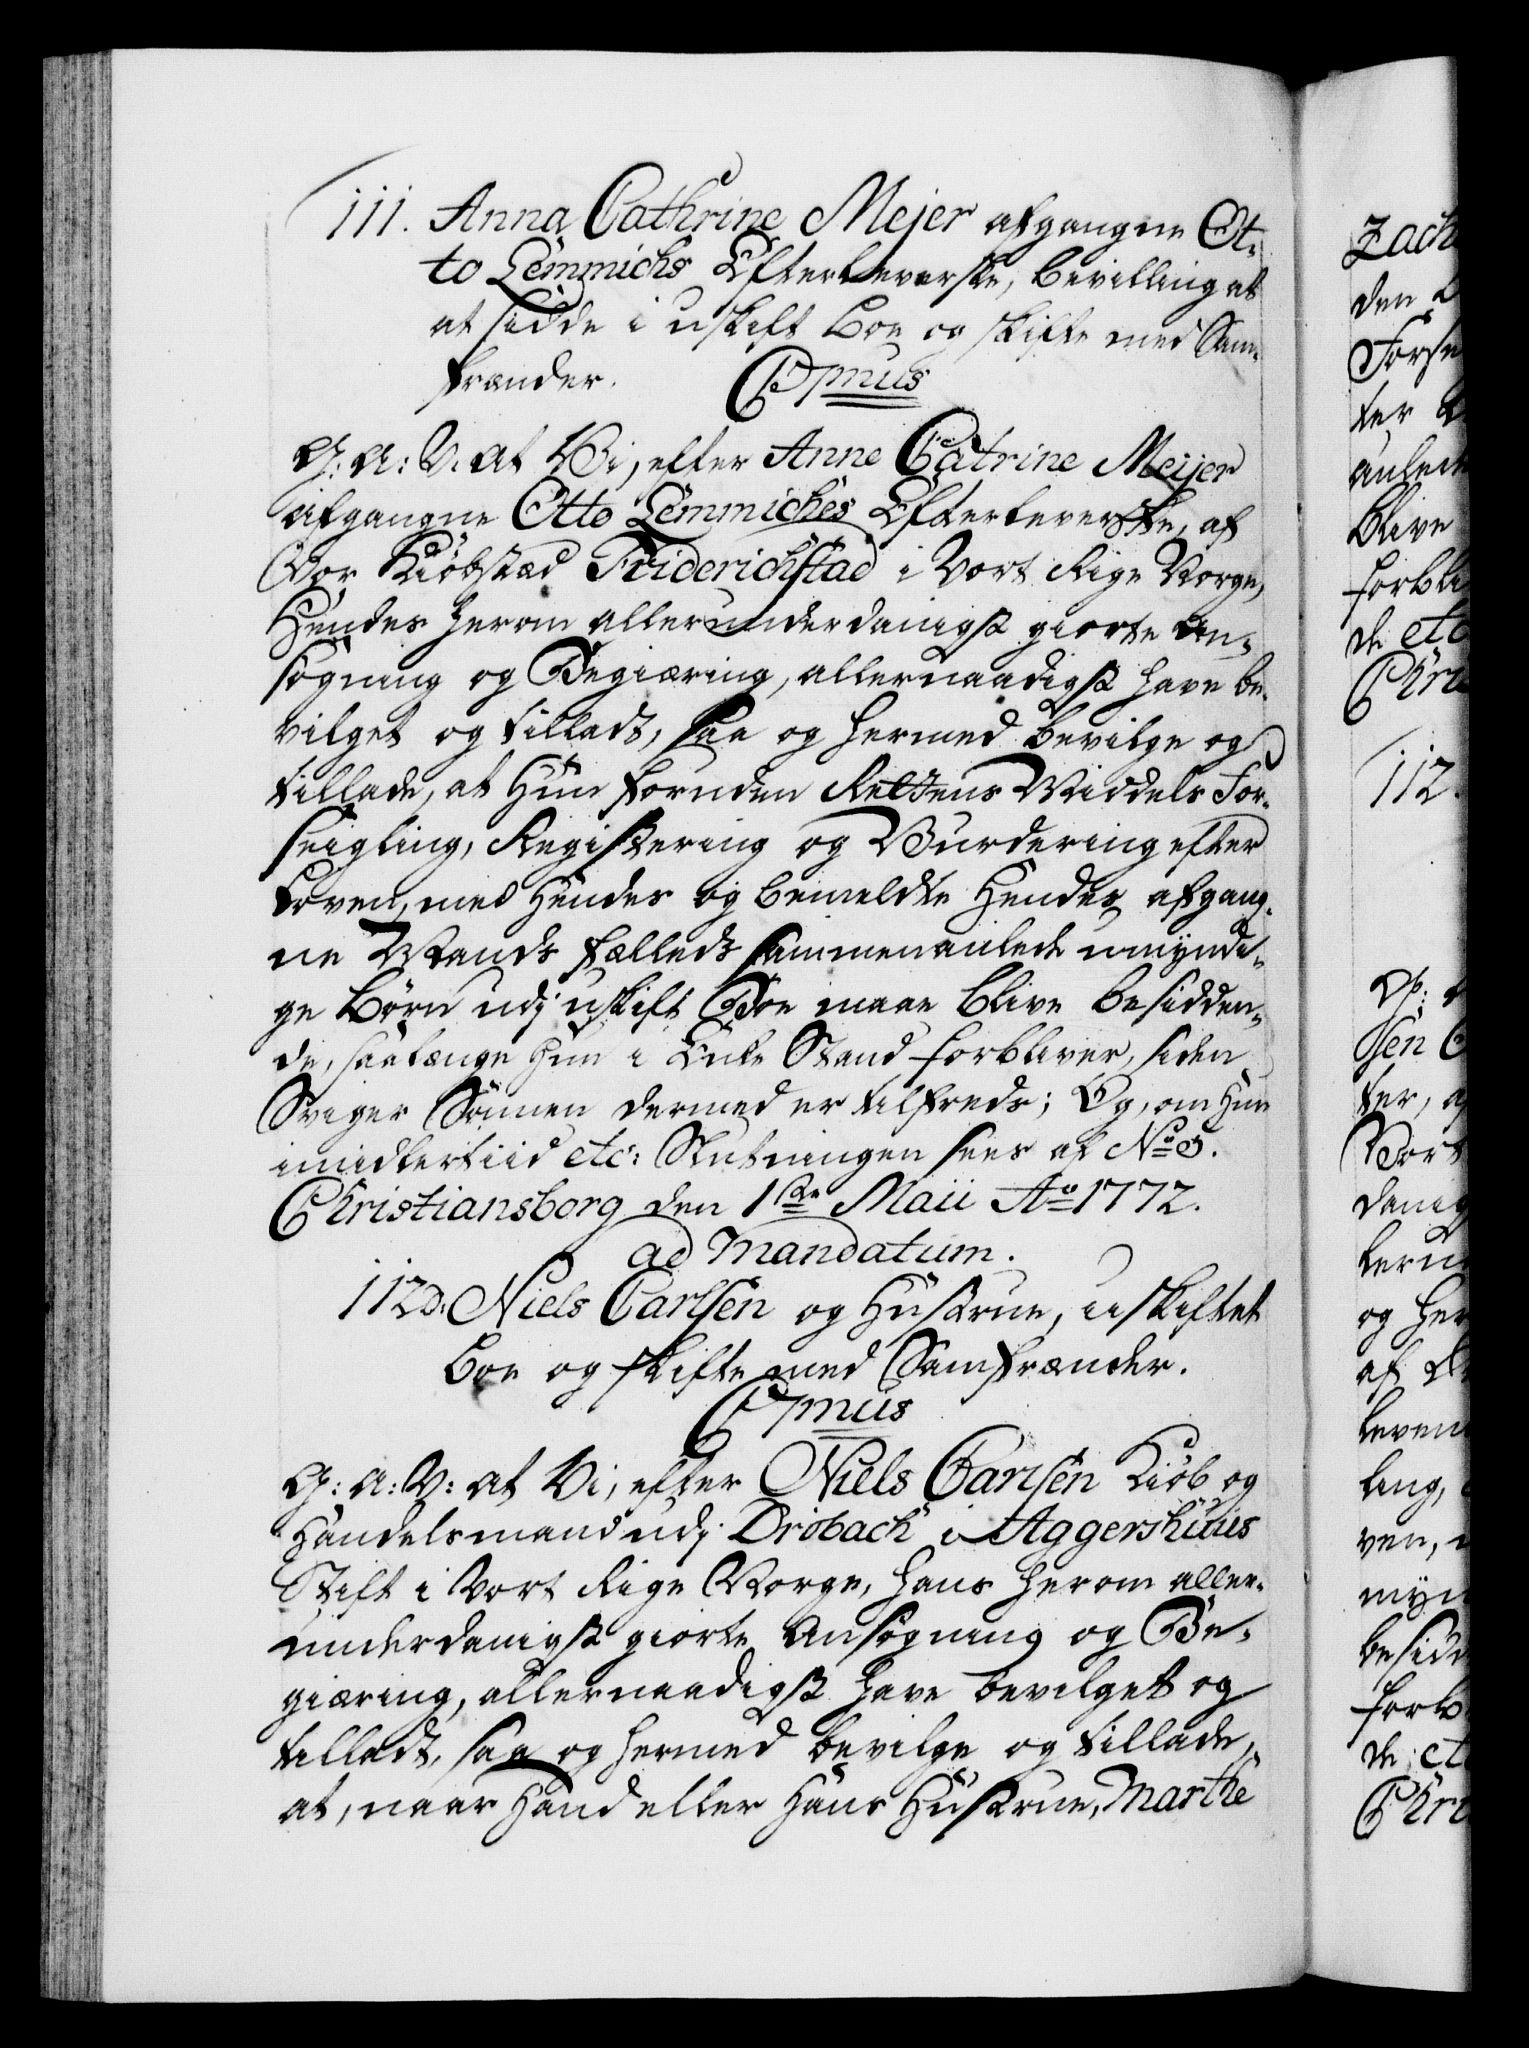 111. Anna Cathrine Mejer afgangne Ot-
to Lemmichs Efterleverske, Bevilling at
at sidde i uskift Boe og skifte med Sam-
frænder. C7mus
G: A: V. At Vi, efter Anne Catrine Meijer
afgangne Otto Lemmiches Efterleverske, af
Vor Kiøbstæd Friderichstad i Vort Rige Norge,
Hendes herom allerunderdanigst giorte An-
søgning og Begiæring, allernaadigst have be-
vilget og tilladt, saa og hermed bevilge og
tillade, at Hun foruden Rettens Middels For-
seigling, Registering og Vurdering efter
Loven, med Hendes og bemeldte Hendes afgang-
ne Mands fælleds sammenavlede umyndi-
ge Børn udj uskift Boe maae blive besidden-
de, saalænge hun i Enke Stand forbliver, siden
Sviger Sönnen dermed er tilfreds; Og, om Hun
imidlertiid etc: Slutningen sees af No 3.
Christiansborg den 1ste Maii Ao 1772.
ad Mandatum.
112 Niels Carlsen og Hustrue, uskiftet
Boe og skifte med Samfrænder.
C7mus
G: A: V: At Vi, efter Niels Carlsen Kiøb og
Handelsmand udj Drøbach i Aggershuus
Stift i Vort Rige Norge, hans herom aller-
underdanigst giorte Ansøgning og Be-
giæring, allernaadigst have bevilget og
tilladt, saa og hermed bevilge og tillade,
at, naar Hand eller Hans Hustrue, Marthe
Zach
den
Forse
ter
anled
blive
forbli
de etc
Chri
112.
ter,
Vort
danig
lerun
og her
af
leven
ling,
ven,
myn
besidd
forb
de etc
Chri